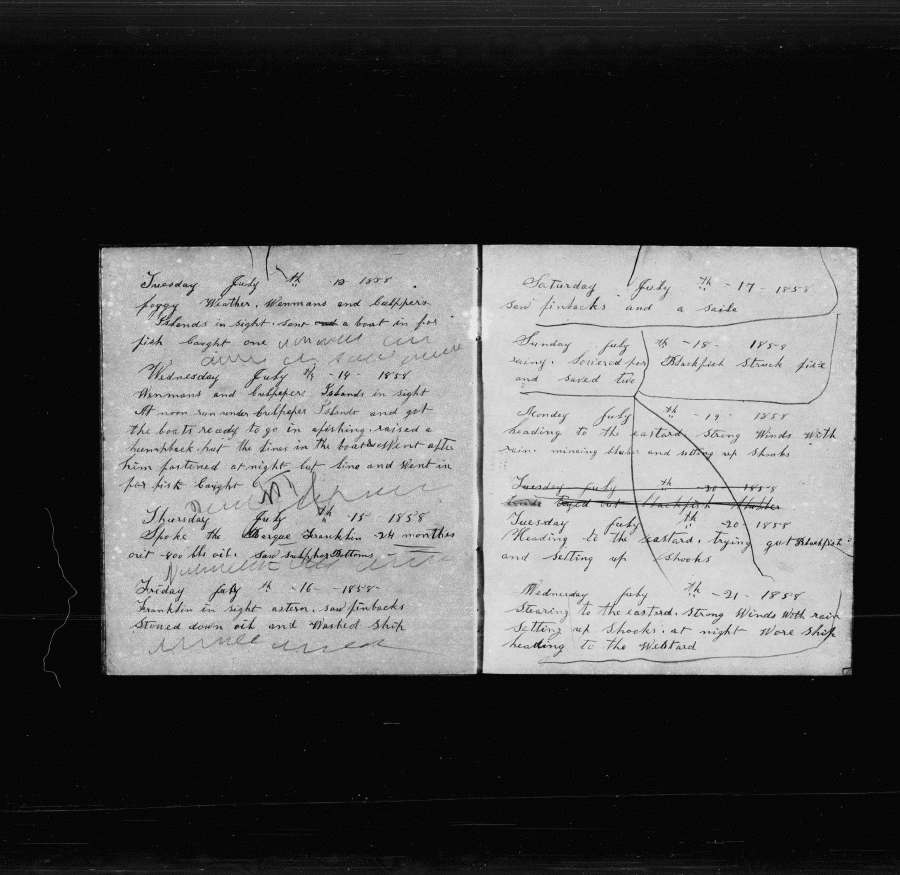 Tuesday July th 13 1858
foggy Weather. Wenmans and Culppers
Islands in sight. sent and a boat in for
fish Caught one
Wednesday July th - 14 - 1858
Wenmans and Culpepers Islands in sight
At noon run under Culpeper Islands and got
the boats ready to go in afishing. raised a
humpback. put the lines in the boats Went after
him fastened at night. cut line and Went in
for fish Caught
Thursday July th - 15 - 1858
Spoke the Barque Franklin - 24 months
out - 800 bbs oil. Saw Sulpher Bottoms
Friday July th - 16 - - 1858 -
Franklin in sight astern. saw finbacks
Stoned down oil and Washed Ship
Saturday July th - 17 - 1858
saw finbacks and a saile
Sunday July th - 18 - 1858
rainy. Lowered for Blackfish Struck five
and saved two
Monday July th - 19 - 1858
heading to the eastard. Strong Winds With
rain. minceing blubber and setting up Shooks
Tuesday July th - 20 - 1858
out blackfish blubber
Tuesday July th - 20 - 1858
Heading to the eastard. trying out Blackfish
and setting up Shooks
Wednesday July th - 21 - 1858
Stearing to the eastard. Strong Winds With rain
Setting up Shooks. at night Wore Ship
heading to the Westard